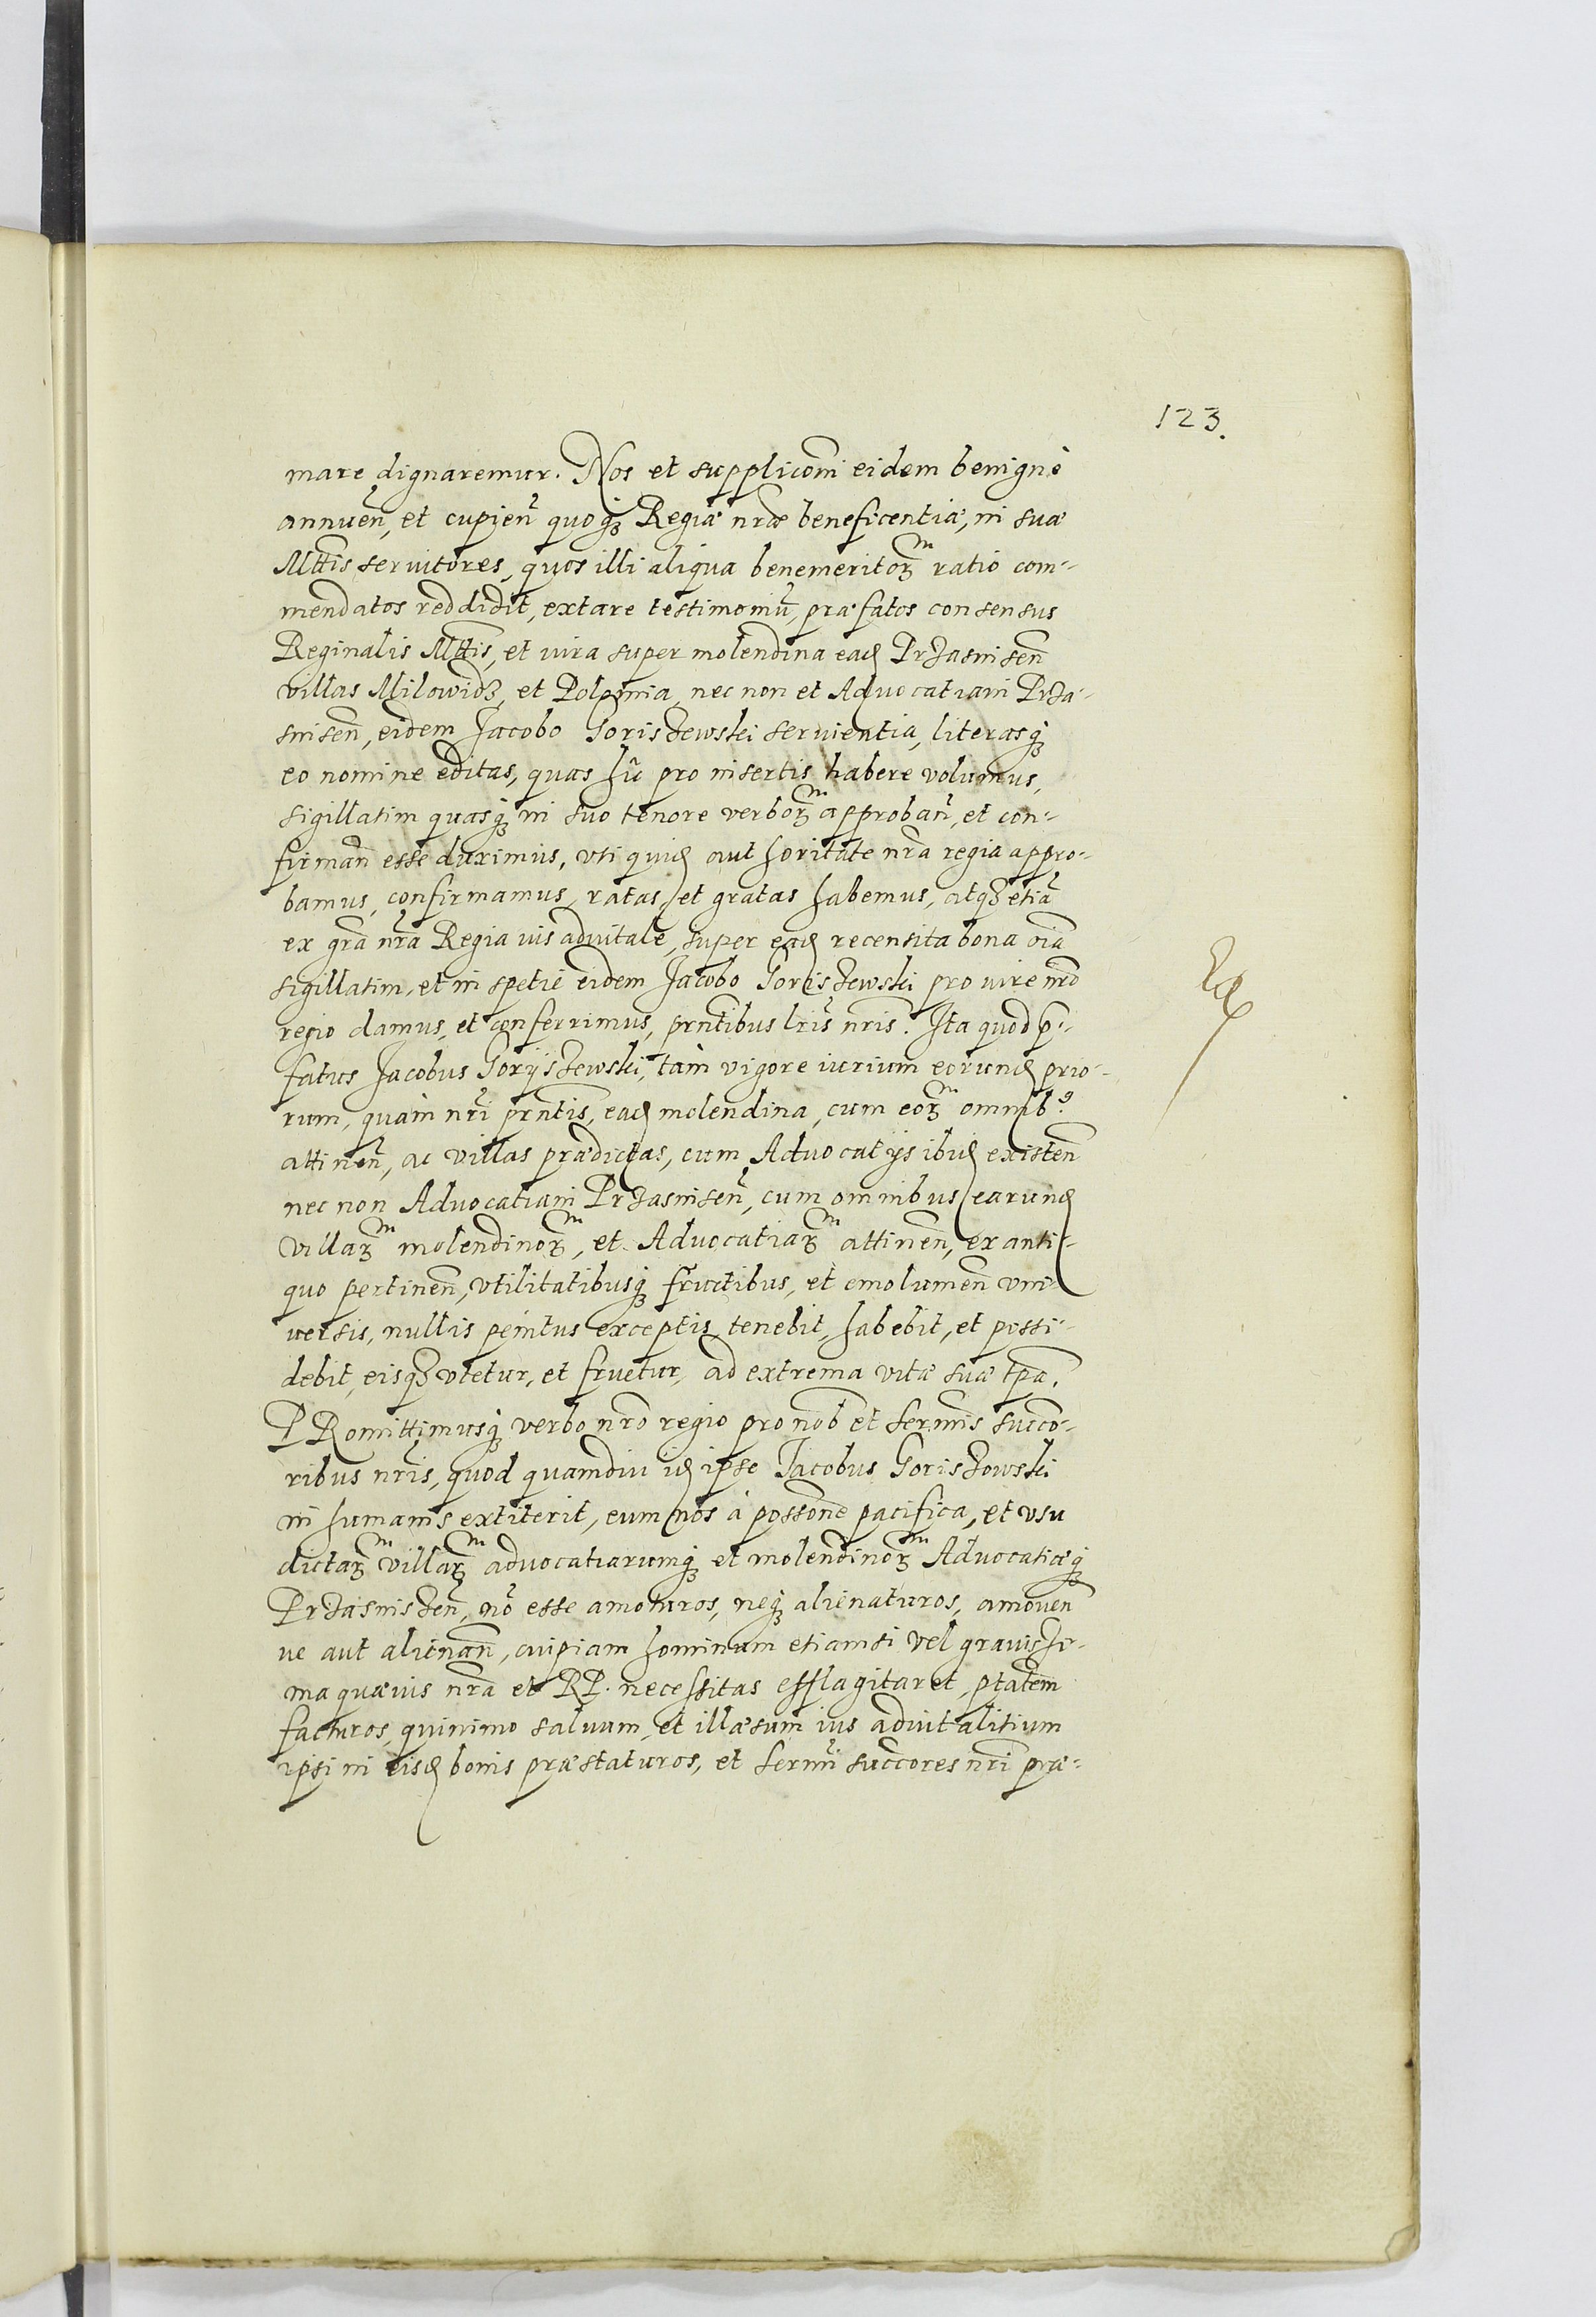 123.
mare dignaremur. Nos et supplicõni eidem benignè
annuẽn, et cupiẽn quoqꝫ Regiæ nr̃æ beneficentiæ, in suæ
Mttis servitores, quos illi aliqua benemeritoꝝᵐ ratio com-
mendatos reddidit, extare testimoniũ, præfatos consensus
Reginalis Mttis, et iura super molendina eaḍ Przasnisẽn
villas Milowidz, et Polonia, nec non et Advocatiam Prza-
snisẽn, eidem Jacobo Goriszewski servientia, literasqꝫ
eo nomine editas, quas hĩc pro insertis habere volumus,
sigillatim quasqꝫ in suo tenore verboꝝᵐ approbañ, et con-
firmañ esse duximus, vti quiḍ authoritate nr̃a regia appro-
bamus, confirmamus, ratas, et gratas habemus, atqꝫ etiã
ex gr̃a nr̃a Regia ius advitale, super eaḍ recensita bona oĩa
sigillatim, et in spetie eidem Jacobo Goriszewski pro iure nr̃o
regio damus, et conferrimus, pr̃ntibus lr̃is nr̃is. Ita quod p̃-
fatus Jacobus Gorijszewski, tàm vigore iurium eorunḍ prio-
rum, quàm nr̃i pr̃ntis, eaḍ molendina, cum eoꝝᵐ omnibꝰ
attineñ, ac villas prædictas, cum Advocatijs ibiḍ existeñ
nec non Advocatiam Przasnisẽn, cum omnibus earunḍ
villaꝝᵐ molendinoꝝᵐ, et Advocatiaꝝᵐ attineñ, ex anti-
quo pertineñ, vtilitatibusqꝫ fructibus, et emolumeñ vni-
uersis, nullis penitus exceptis, tenebit, habebit, et possi-
debit, eisqꝫ vtetur, et fruetur, ad extrema vitæ suæ tp̃a.
PRomittimusqꝫ verbo nr̃o regio pro nob̃ et Serm̃is succo-
ribus nr̃is, quod quamdiu iḍ ipse Jacobus Goriszowski
in humanis extiterit, eum nos à posson̄e pacifica, et vsu
dictaꝝᵐ villaꝝᵐ advocatiarumqꝫ et molendinoꝝᵐ Advocatiæqꝫ
Przasniszẽn, nõ esse amoturos, neqꝫ alienaturos, amoueñ
ue aut alienañ, cuipiam hominum etiamsi vel grauissi-
ma quæuis nr̃a et RP. necessitas efflagitaret, p̃tatem
facturos, quinimo saluum, et illæsum ius aduitalitium
ipsi in eisḍ bonis præstaturos, et Serm̃i succores nr̃i præ-